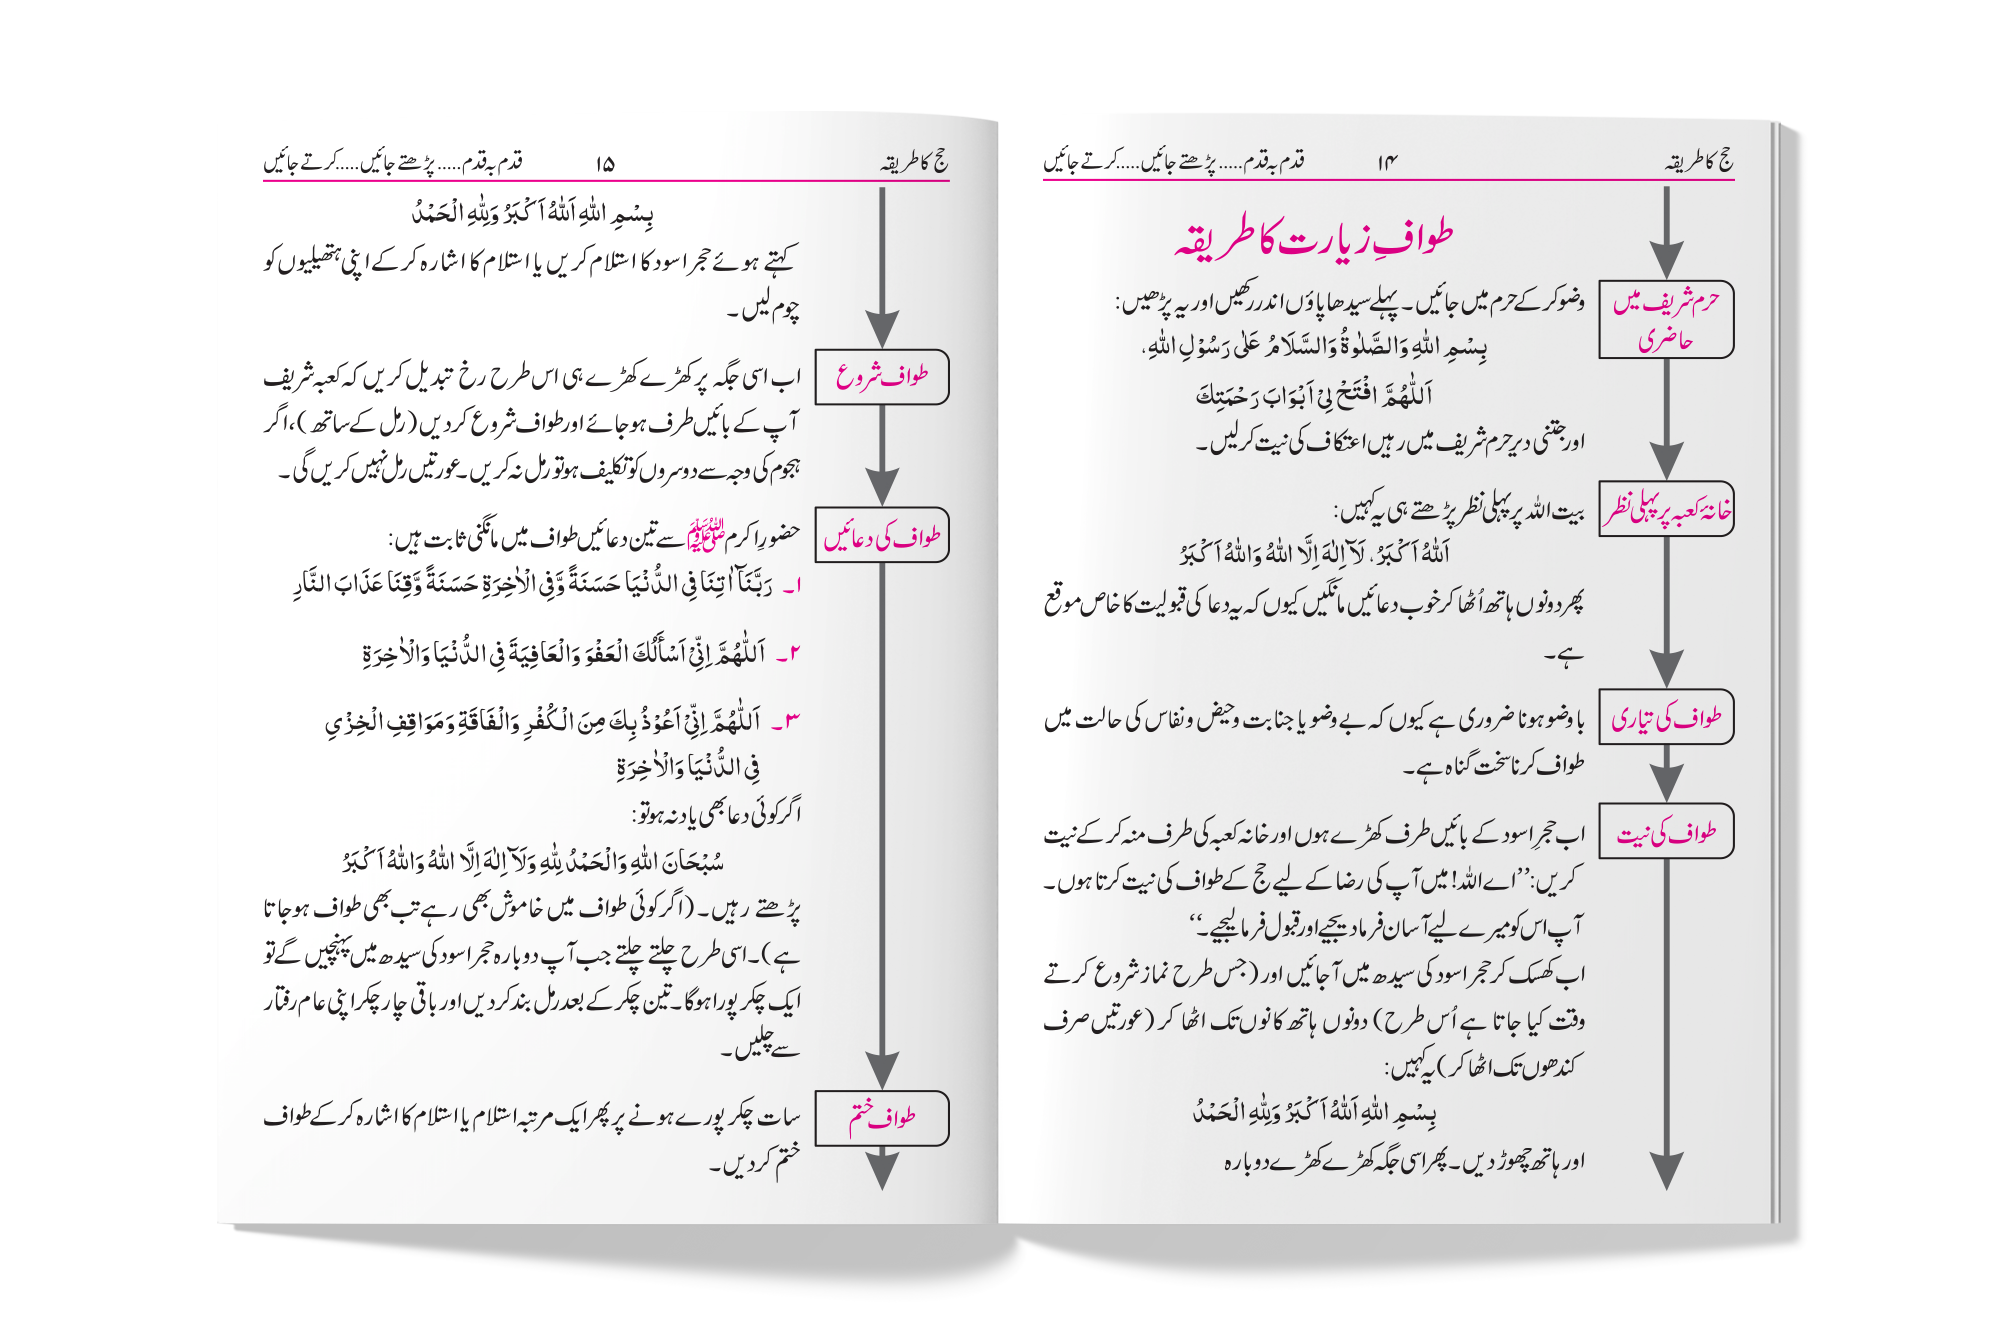 حج کا طریقہ ۱۴ قدم بہ قدم.....پڑھتے جائیں.....کرتے جائیں
طوافِ زیارت کا طریقہ
حرم شریف میں
حاضری
وضو کر کے حرم میں جائیں۔ پہلے سیدھا پاؤں اندر رکھیں اور یہ پڑھیں:
بِسْمِ اللّٰهِ وَالصَّلٰوةُ وَالسَّلَامُ عَلٰى رَسُوْلِ اللّٰهِ،
اَللّٰهُمَّ افْتَحْ لِيْ اَبْوَابَ رَحْمَتِكَ
اور جتنی دیر حرم شریف میں رہیں اعتکاف کی نیت کرلیں۔
خانۂ کعبہ پر پہلی نظر
بیت اللہ پر پہلی نظر پڑھتے ہی یہ کہیں:
اَللّٰهُ اَكْبَرُ، لَآ اِلٰهَ اِلَّا اللّٰهُ وَاللّٰهُ اَكْبَرُ
پھر دونوں ہاتھ اُٹھا کر خوب دعائیں مانگیں کیوں کہ یہ دعا کی قبولیت کا خاص موقع
ہے۔
طواف کی تیاری
با وضو ہونا ضروری ہے کیوں کہ بے وضو یا جنابت وحیض ونفاس کی حالت میں
طواف کرنا سخت گناہ ہے۔
طواف کی نیت
اب حجرِ اسود کے بائیں طرف کھڑے ہوں اور خانہ کعبہ کی طرف منہ کر کے نیت
کریں: ’’اے اللہ! میں آپ کی رضا کے لیے حج کے طواف کی نیت کرتا ہوں۔
آپ اس کو میرے لیے آسان فرما دیجیے اور قبول فرما لیجیے۔‘‘
اب کھسک کر حجر اسود کی سیدھ میں آ جائیں اور (جس طرح نماز شروع کرتے
وقت کیا جاتا ہے اُس طرح) دونوں ہاتھ کانوں تک اٹھا کر (عورتیں صرف
کندھوں تک اٹھا کر) یہ کہیں:
بِسْمِ اللّٰهِ اَللّٰهُ اَكْبَرُ وَلِلّٰهِ الْحَمْدُ
اور ہاتھ چھوڑ دیں۔ پھر اسی جگہ کھڑے کھڑے دوبارہ
حج کا طریقہ ۱۵ قدم بہ قدم.....پڑھتے جائیں.....کرتے جائیں
بِسْمِ اللّٰهِ اَللّٰهُ اَكْبَرُ وَلِلّٰهِ الْحَمْدُ
کہتے ہوئے حجر اسود کا استلام کریں یا استلام کا اشارہ کر کے اپنی ہتھیلیوں کو
چوم لیں۔
طواف شروع
اب اسی جگہ پر کھڑے کھڑے ہی اس طرح رخ تبدیل کریں کہ کعبہ شریف
آپ کے بائیں طرف ہو جائے اور طواف شروع کردیں (رمل کے ساتھ)، اگر
ہجوم کی وجہ سے دوسروں کو تکلیف ہو تو رمل نہ کریں۔ عورتیں رمل نہیں کریں گی۔
طواف کی دعائیں
حضورِ اکرم ﷺ سے تین دعائیں طواف میں مانگنی ثابت ہیں:
۱۔ رَبَّنَآ اٰتِنَا فِي الدُّنْيَا حَسَنَةً وَّفِي الْاٰخِرَةِ حَسَنَةً وَّقِنَا عَذَابَ النَّارِ
۲۔ اَللّٰهُمَّ اِنِّيْ اَسْأَلُكَ الْعَفْوَ وَالْعَافِيَةَ فِي الدُّنْيَا وَالْاٰخِرَةِ
۳۔ اَللّٰهُمَّ اِنِّيْ اَعُوْذُ بِكَ مِنَ الْكُفْرِ وَالْفَاقَةِ وَمَوَاقِفِ الْخِزْيِ
فِي الدُّنْيَا وَالْاٰخِرَةِ
اگر کوئی دعا بھی یاد نہ ہو تو:
سُبْحَانَ اللّٰهِ وَالْحَمْدُ لِلّٰهِ وَلَآ اِلٰهَ اِلَّا اللّٰهُ وَاللّٰهُ اَكْبَرُ
پڑھتے رہیں۔ (اگر کوئی طواف میں خاموش بھی رہے تب بھی طواف ہو جاتا
ہے)۔ اسی طرح چلتے چلتے جب آپ دوبارہ حجر اسود کی سیدھ میں پہنچیں گے تو
ایک چکر پورا ہوگا۔ تین چکر کے بعد رمل بند کردیں اور باقی چار چکر اپنی عام رفتار
سے چلیں۔
طواف ختم
سات چکر پورے ہونے پر پھر ایک مرتبہ استلام یا استلام کا اشارہ کر کے طواف
ختم کردیں۔